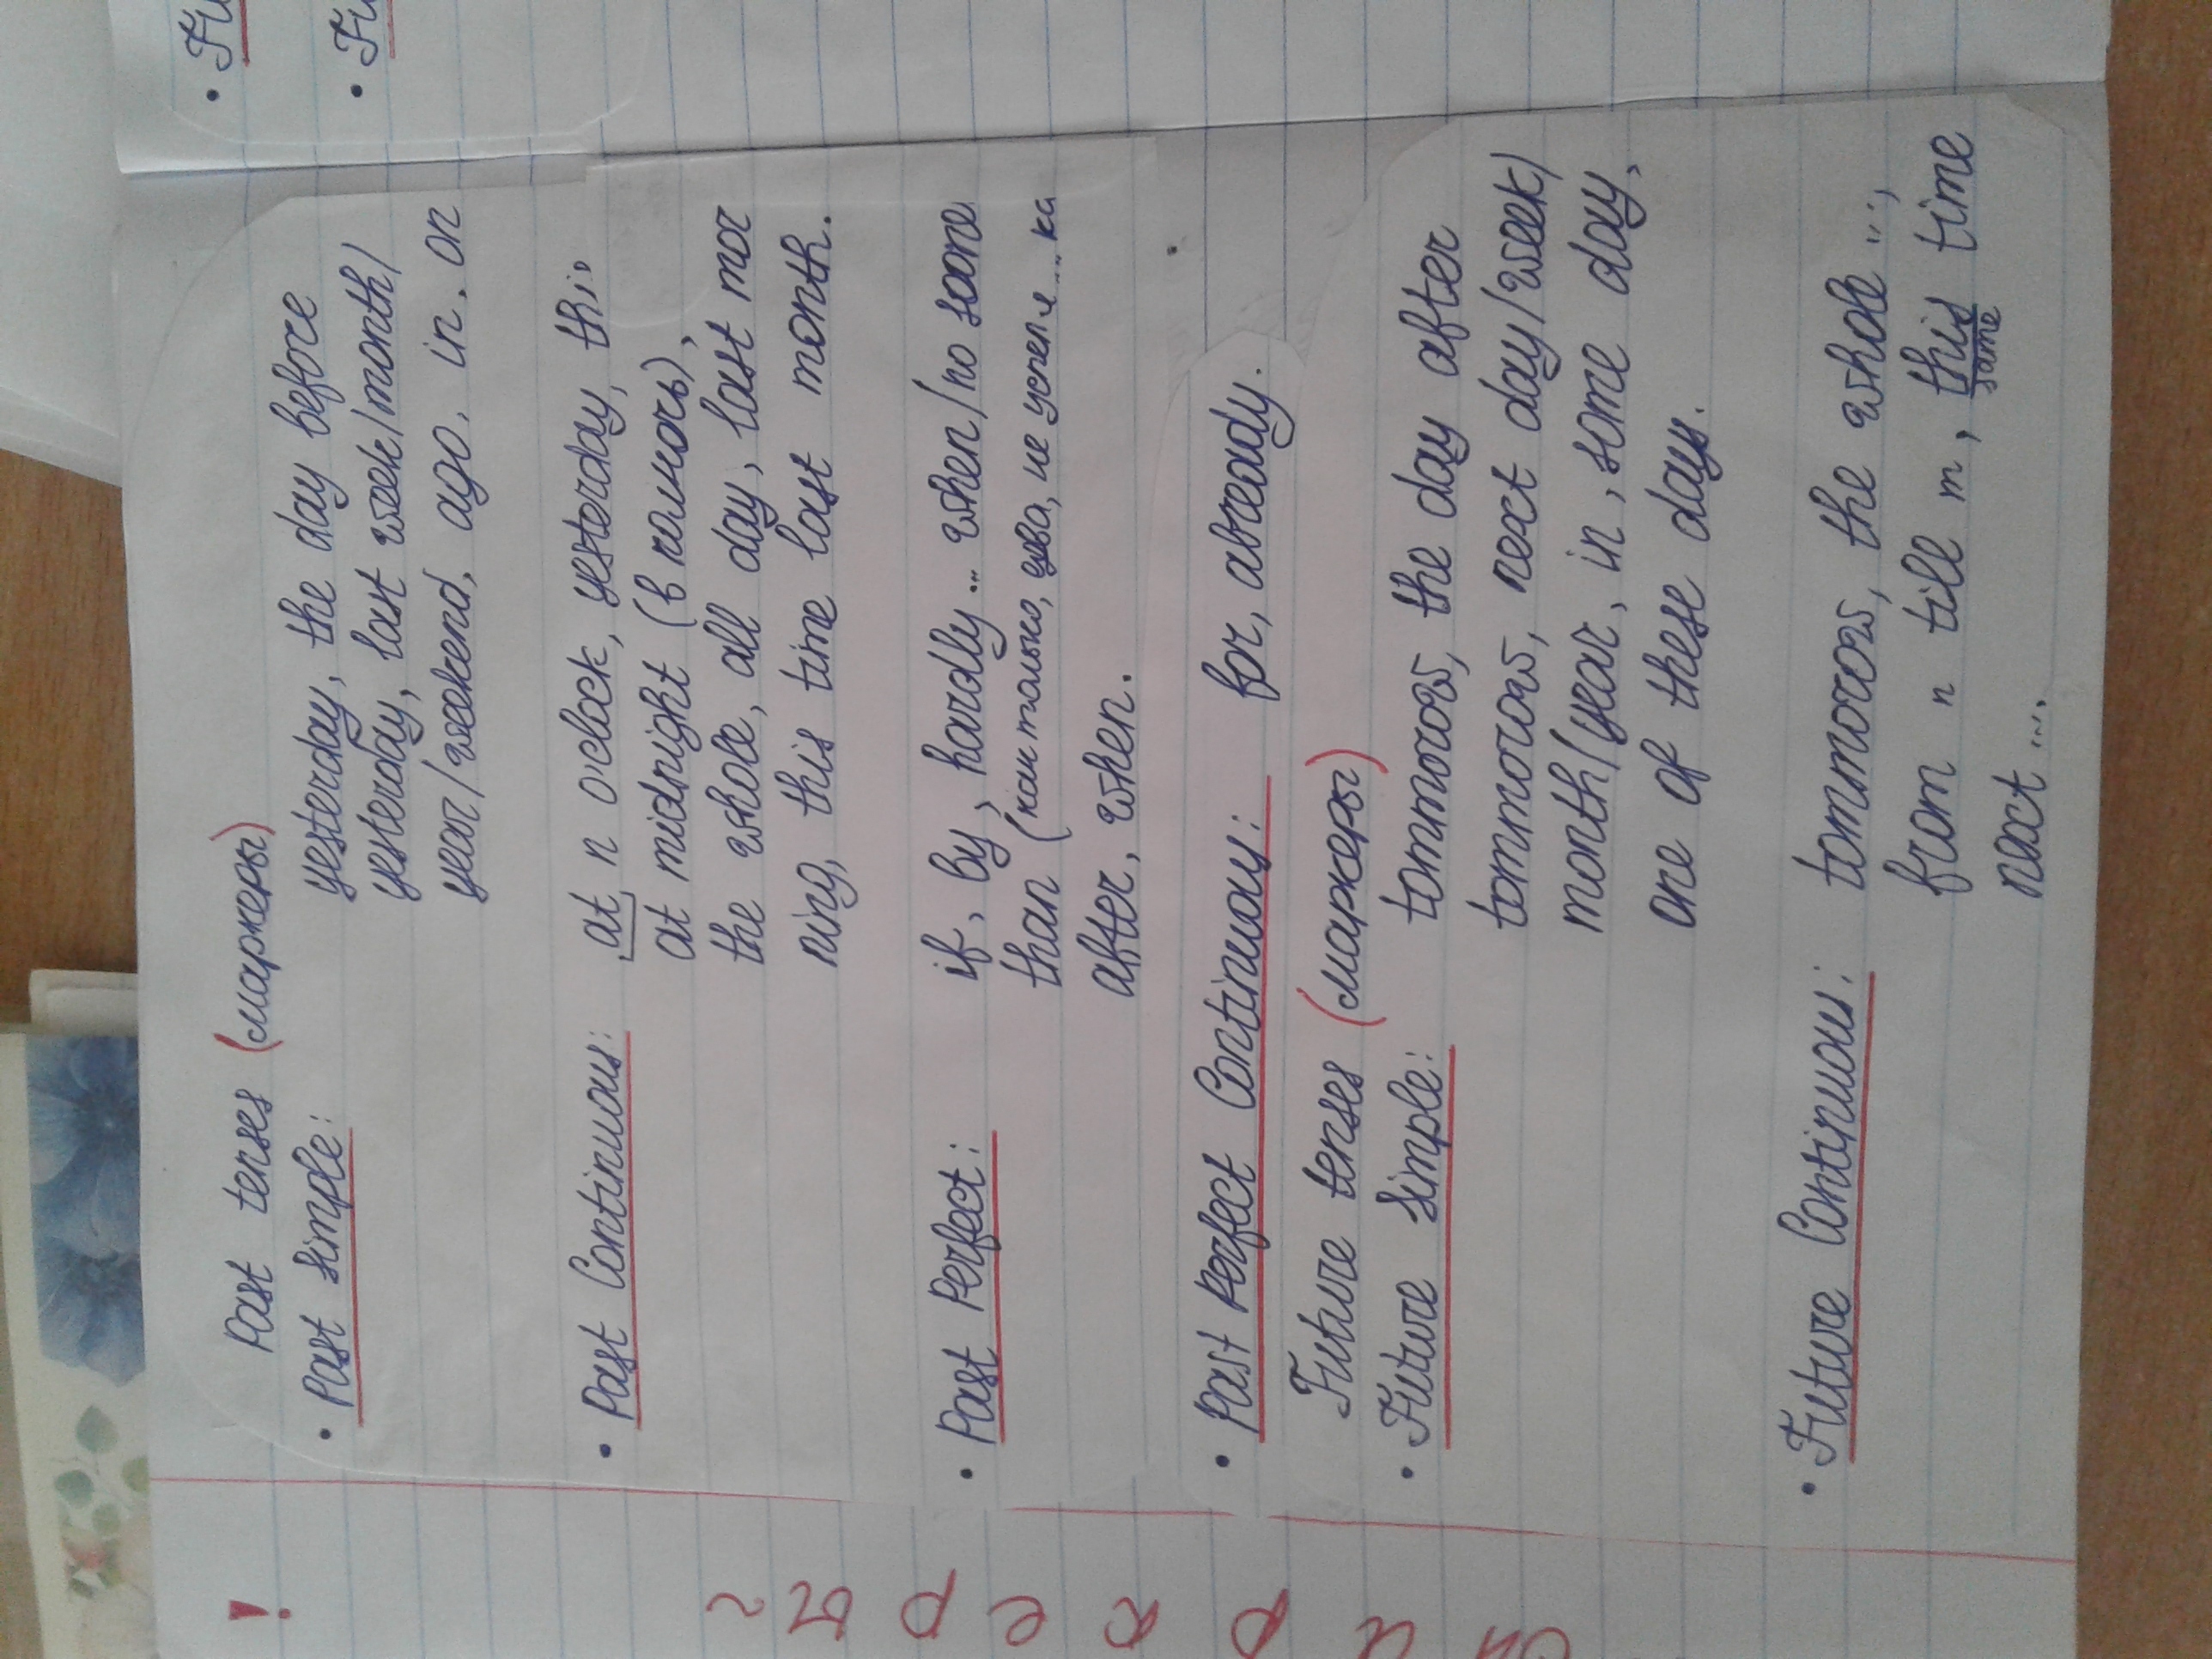 !
Past tenses (маркеры)
• Past Simple: yesterday, the day before
yesterday, last week/month/
year/weekend, ago, in, on
• Past Continuous: at n o'clock, yesterday, this
at midnight (в полночь),
the whole, all day, last mor
ning, this time last month.
• Past Perfect: if, by, hardly... when/no soone
than (как только, едва, не успел и ... ка
after, when.
• Past Perfect Continuouy: for, already.
Future tenses (маркеры)
• Future Simple: tommorow, the day after
tommorow, next day/week/
month/year, in, some day,
one of these days.
• Future Continuous: tommorow, the whole ...,
from n till m, this time
same
next ....
• Fu
• Fu